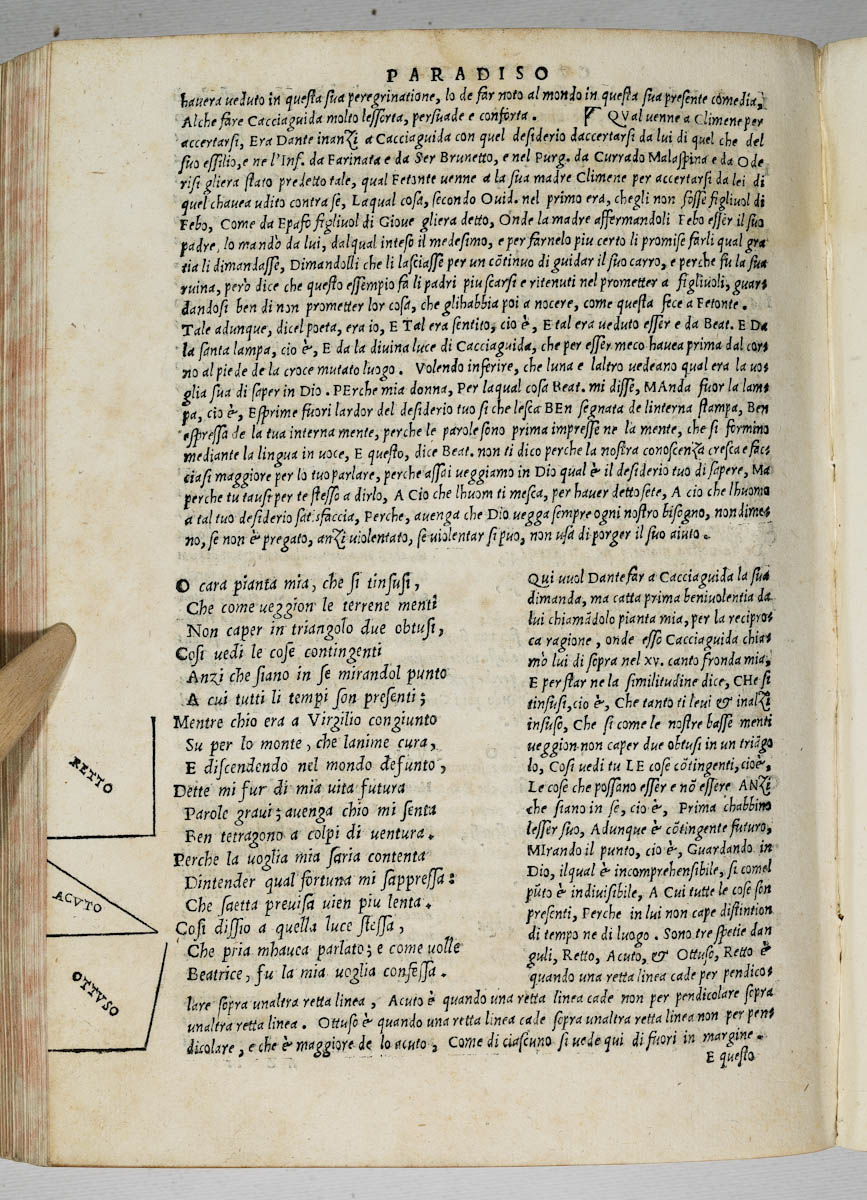 PARADISO
havera veduto in questa sua peregrinatione, lo de far noto al mondo in questa sua presente comedia,
Alche fare Cacciaguida molto lessorta, persuade e conforta. QVal venne a Climene per
accertarsi, Era Dante inanzi a Cacciaguida con quel desiderio daccertarsi da lui di quel che del
suo essilio, e ne l'Inf. da Farinata e da Ser Brunetto, e nel Purg. da Currado Malaspina e da Ode
risi gliera stato predetto tale, qual Fetonte venne a la sua madre Climene per accertarsi da lei di
quel chavea udito contra se, Laqual cosa, secondo Ouid. nel primo era, chegli non fosse figliuol di
Febo, Come da Epafo figliuol di Gioue gliera detto, Onde la madre affermandoli Febo esser il suo
padre, lo mandò da lui, dalqual inteso il medesimo, e per farnelo piu certo li promise farli qual gra
tia li dimandasse, Dimandolli che li lasciasse per un cōtinuo di guidar il suo carro, e perche fu la sua
ruina, però dice che questo essempio fa li padri piu scarsi e ritenuti nel prometter a figliuoli, guar=
dandosi ben di non prometter lor cosa, che glihabbia poi a nocere, come questa fece a Fetonte.
Tale adunque, dicel poeta, era io, E Tal era sentito, cio è, E tal era ueduto esser e da Beat. E Da
la santa lampa, cio è, E da la diuina luce di Cacciaguida, che per esser meco hauea prima dal cor=
no al piede de la croce mutato luogo. Volendo inferire, che luna e laltro uedeano qual era la uo=
glia sua di saper in Dio. PErche mia donna, Per laqual cosa Beat. mi disse, MAnda fuor la lam=
pa, cio è, Esprime fuori lardor del desiderio tuo si che lesca BEn segnata de linterna stampa, Ben
espressa de la tua interna mente, perche le parole sono prima impresse ne la mente, che si formino
mediante la lingua in uoce, E questo, dice Beat. non ti dico perche la nostra conoscenza cresca e fac=
ciasi maggiore per lo tuo parlare, perche assai ueggiamo in Dio qual è il desiderio tuo di sapere, Ma
perche tu tausi per te stesso a dirlo, A Cio che lhuom ti mesca, per hauer detto sete, A cio che lhuomo
a tal tuo desiderio satisfaccia, Perche, auenga che Dio uegga sempre ogni nostro bisogno, nondime=
no, se non è pregato, anzi uiolentato, se uiolentar si puo, non usa di porger il suo aiuto.
O cara pianta mia, che si tinsusi,
Che come ueggion le terrene menti
Non caper in triangolo due obtusi,
Cosi uedi le cose contingenti
Anzi che siano in se mirandol punto
A cui tutti li tempi son presenti;
Mentre chio era a Virgilio congiunto
Su per lo monte, che lanime cura,
E discendendo nel mondo defunto,
Dette mi fur di mia uita futura
Parole graui; auenga chio mi senta
Ben tetragono a colpi di uentura.
Perche la uoglia mia saria contenta
Dintender qual fortuna mi sappressa:
Che saetta preuisa uien piu lenta.
Cosi dissio a quella luce stessa,
Che pria mhauea parlato; e come uolle
Beatrice, fu la mia uoglia confessa.
Qui uuol Dante far a Cacciaguida la sua
dimanda, ma catta prima beniuolentia da
lui chiamādolo pianta mia, per la recipro=
ca ragione, onde esso Cacciaguida chia=
mò lui di sopra nel xv. canto fronda mia,
E per star ne la similitudine dice, CHe si
tinsusi, cio è, Che tanto ti leui & inalzi
insuso, Che si come le nostre basse menti
ueggion non caper due obtusi in un triāgo
lo, Cosi uedi tu LE cose cōtingenti, cioè,
Le cose che possano esser e nō essere ANZi
che siano in se, cio è, Prima chabbino
lesser suo, Adunque è cōtingente futuro,
MIrando il punto, cio è, Guardando in
Dio, ilqual è incomprehensibile, si comel
pūto è indiuisibile, A Cui tutte le cose son
presenti, Perche in lui non cape distintion
di tempo ne di luogo. Sono tre spetie dan
guli, Retto, Acuto, & Ottuso, Retto è
quando una retta linea cade per pendico=
lare sopra unaltra retta linea, Acuto è quando una retta linea cade non per pendicolare sopra
unaltra retta linea. Ottuso è quando una retta linea cade sopra unaltra retta linea non per pen=
dicolare, e che è maggiore de lo acuto, Come di ciascuno si uede qui di fuori in margine.
E questo
RETTO
ACVTO
OTTVSO